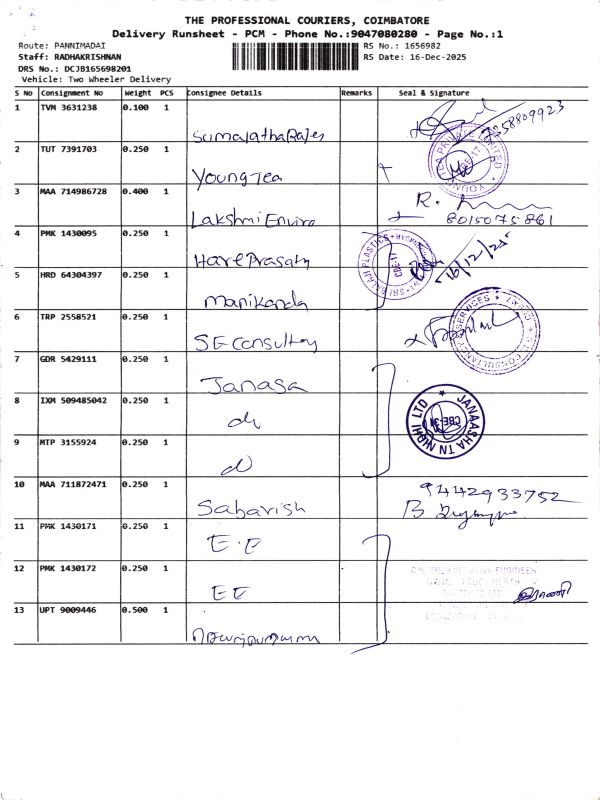 THE PROFESSIONAL COURIERS, COIMBATORE
Delivery Runsheet - PCM - Phone No.:9047080280 - Page No.:1
Route: PANNIMADAI
RS No.: 1656982
Staff: RADHAKRISHNAN
RS Date: 16-Dec-2025
DRS No.: DCJB165698201
Vehicle: Two Wheeler Delivery
S No Consignment No Weight PCS Consignee Details Remarks Seal & Signature
1 TVM 3631238 0.100 1
7358809923
2 TUT 7391703 0.250 1
Young Tea
YOUNG TEA PRIVATE LIMITED
CBE-17
3 MAA 714986728 0.400 1
Lakshmi Enviro
R.
8015075861
4 PMK 1430095 0.250 1
Hare Prasath
SRI BALAJI PLASTICS
CBE-17
16/12/25
5 HRD 64304397 0.250 1
Manikanda
6 TRP 2558521 0.250 1
SE Consultency
7 GDR 5429111 0.250 1
Janasa
8 IXM 509485042 0.250 1
JANAASHA TN NIDHI LTD
9 MTP 3155924 0.250 1
10 MAA 711872471 0.250 1
Sabarish
9442933752
B
11 PMK 1430171 0.250 1
E.E
12 PMK 1430172 0.250 1
EE
13 UPT 9009446 0.500 1